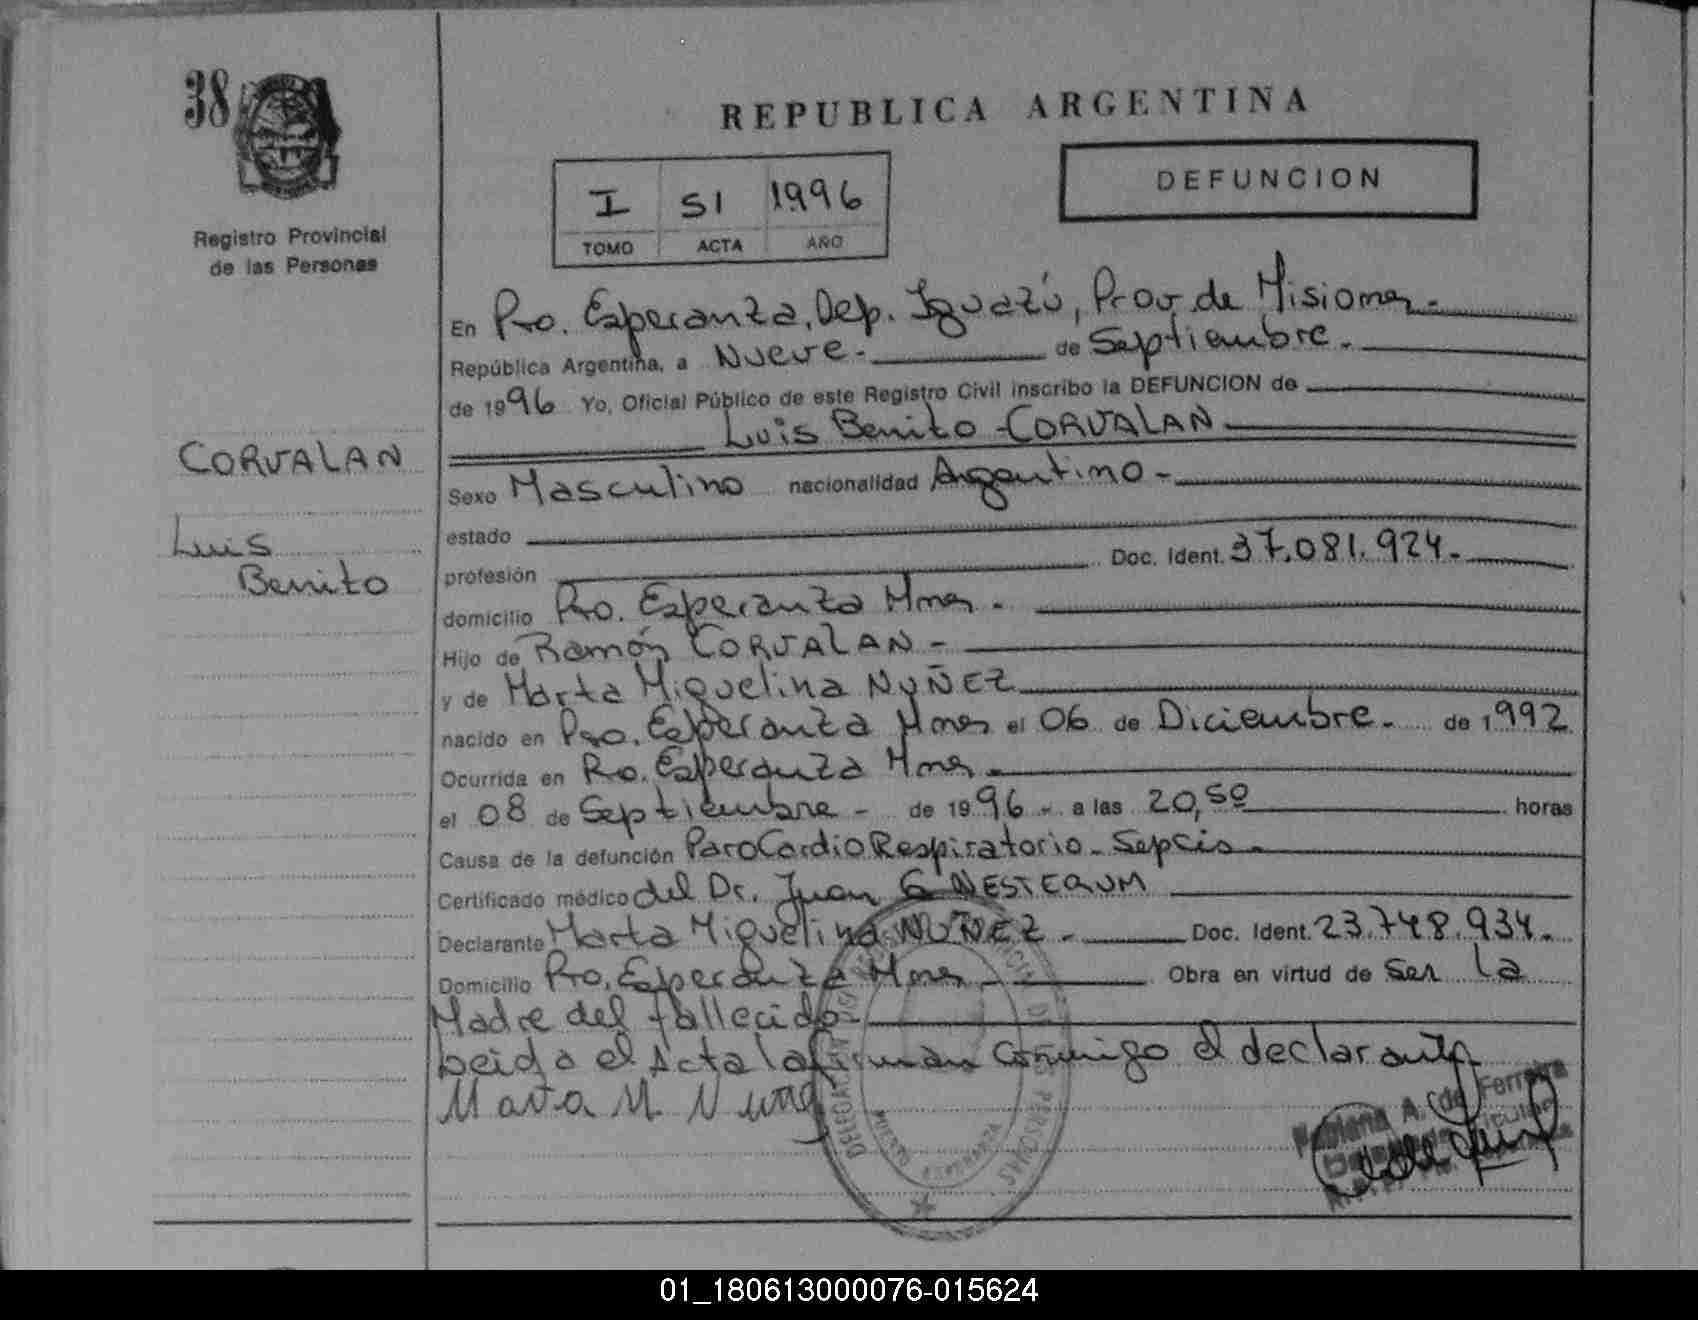 38
REPUBLICA ARGENTINA
I 51 1996
TOMO ACTA AÑO
DEFUNCION
Registro Provincial
de las Personas
CORVALAN
Luis
Benito
En Pto. Esperanza, Dep. Iguazú, Prov. de Misiones.
República Argentina, a Nueve. de Septiembre.
de 1996 Yo, Oficial Público de este Registro Civil inscribo la DEFUNCION de
Luis Benito CORVALAN
Sexo Masculino nacionalidad Argentino
estado
profesión Doc. Ident. 37.081.924.
domicilio Pto. Esperanza Mnes.
Hijo de Ramón CORVALAN
y de Marta Miguelina NUÑEZ
nacido en Pto. Esperanza Mnes el 06 de Diciembre. de 1992
Ocurrida en Pto. Esperanza Mnes.
el 08 de Septiembre de 1996 a las 20,50 horas
Causa de la defunción Paro Cardio Respiratorio - Sepcis.
Certificado médico del Dr. Juan G NESTERUM
Declarante Marta Miguelina NUÑEZ Doc. Ident. 23.748.934.
Domicilio Pto. Esperanza Mnes Obra en virtud de Ser la
Madre del fallecido
Leida el Acta la firman conmigo el declarante
Marta M Nuñez
DELEGACION PERSONAS
PUERTO ESPERANZA
Fabiana A. de Ferreira
01_180613000076-015624